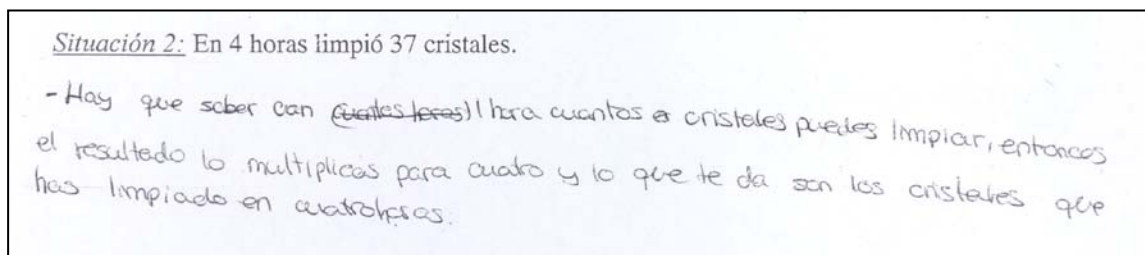 Situación 2: En 4 horas limpió 37 cristales.
- Hay que saber con (cuantas horas) 1 hora cuantos cristales puedes limpiar, entonces
el resultado lo multiplicas para cuatro y lo que te da son los cristales que
has limpiado en cuatro horas.